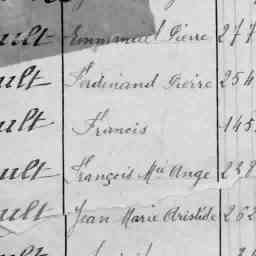 ult Emmanuel Pierre 277
ult Ferdinand Pierre 254
ult Francis 145
ult François Mie Ange 239
ult Jean Marie Aristide 262